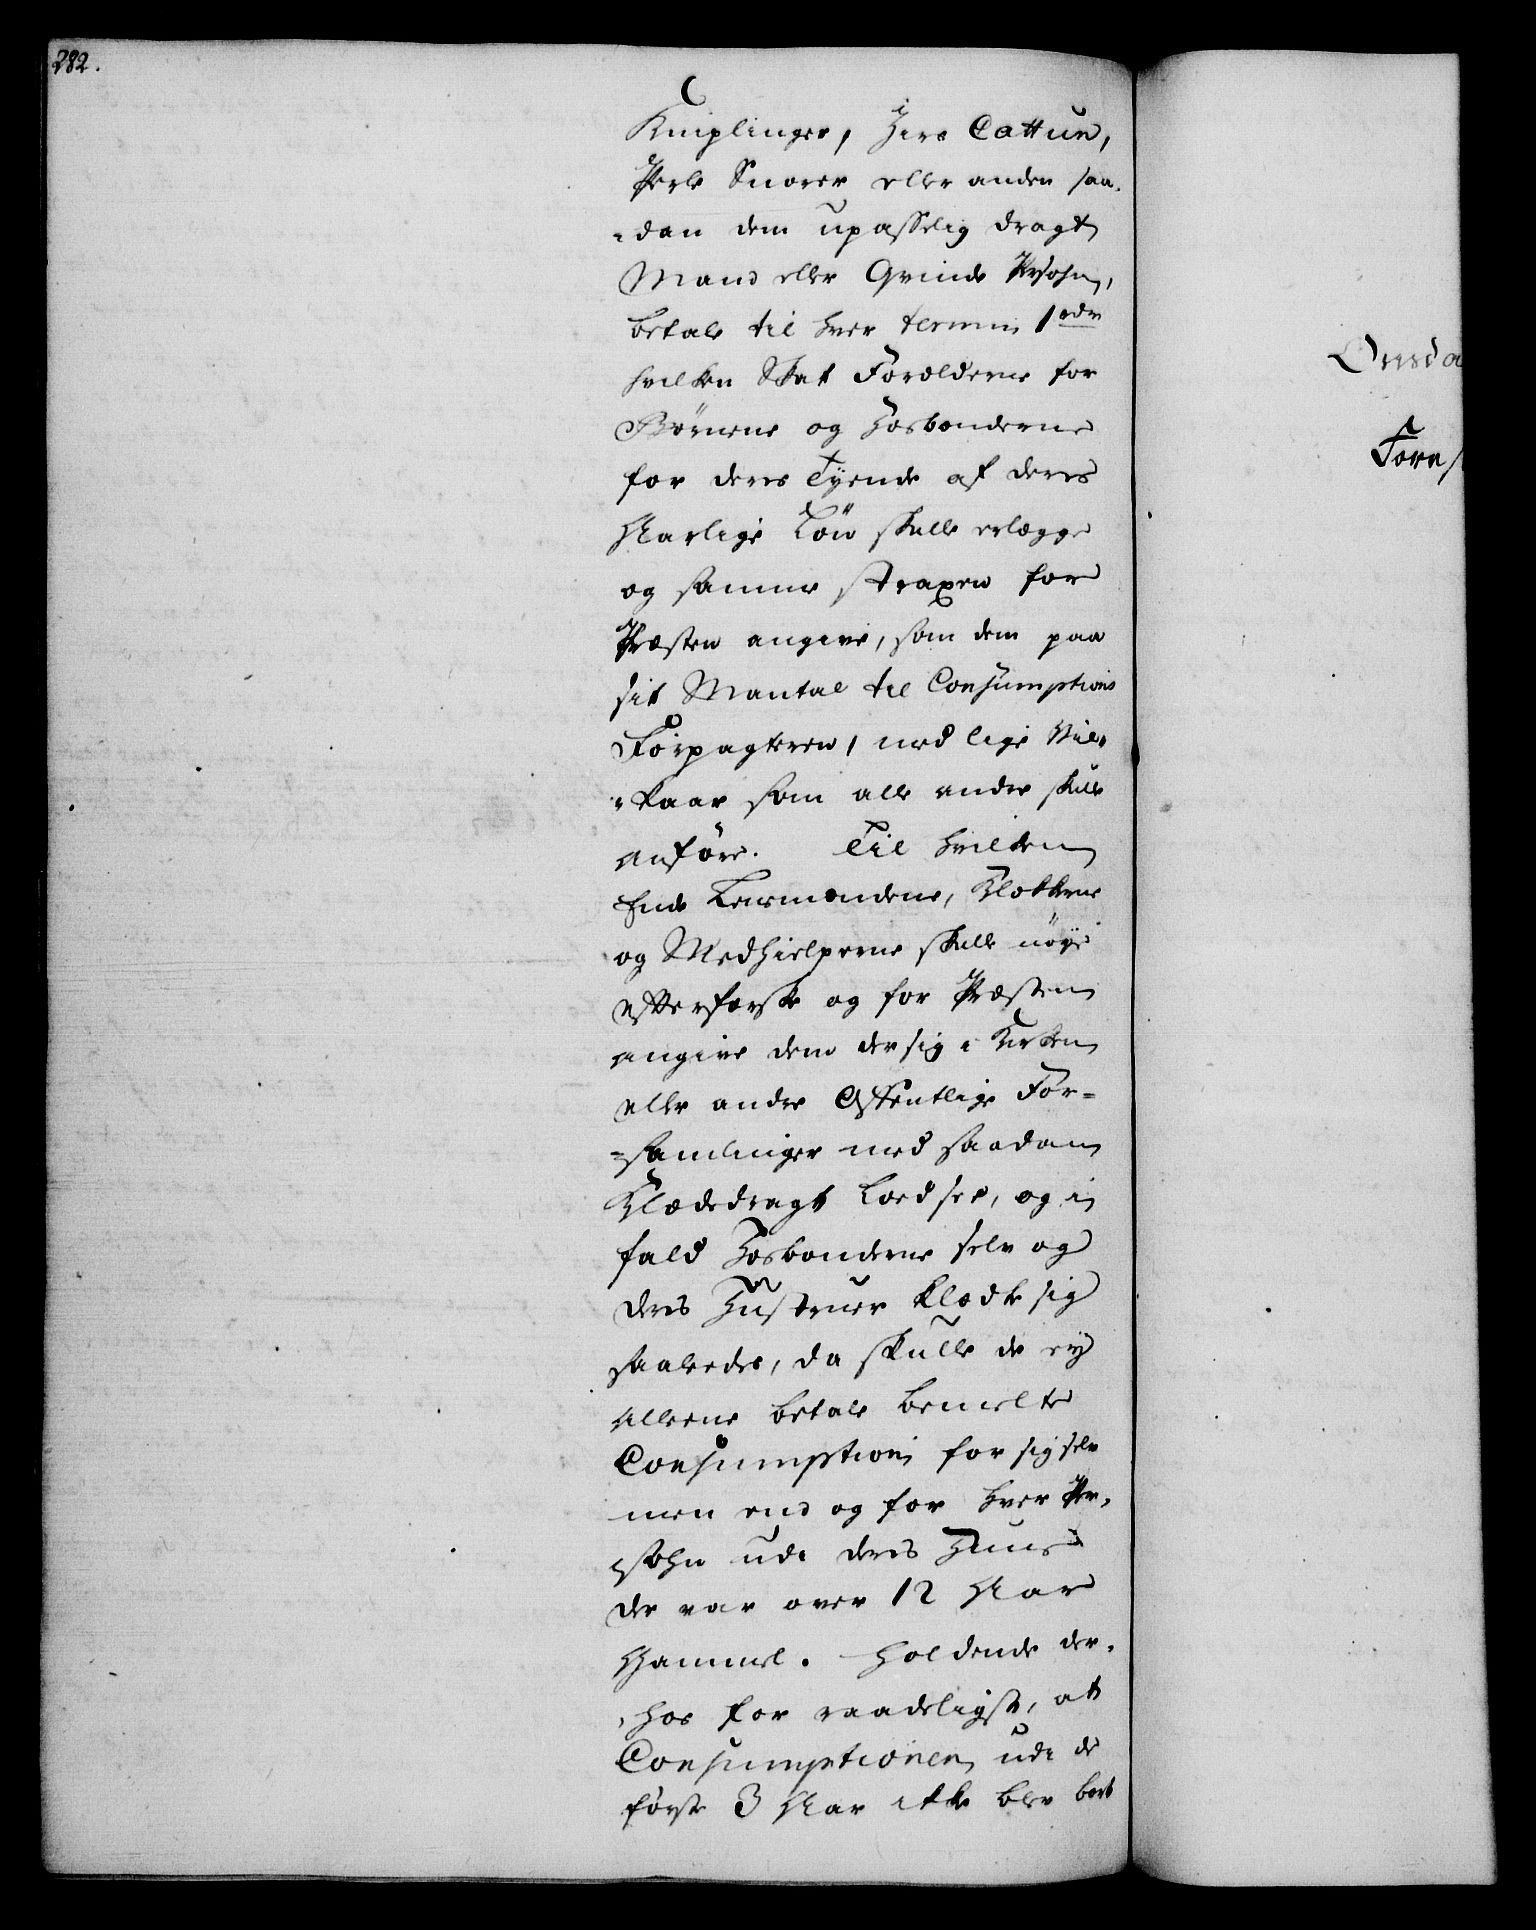 282.
Kniplinger, Zirs Cattun,
Perle Snorer eller anden saa-
-dan dem upasselig dragt
Mand eller Qvinde Persohn,
betale til hver termin 1 rdr
hvilken Skat Forældrene for
Börnene og Hosbonderne
for deres Tyende af deres
Aarlige Lön skulle erlægge
og samme straxen for
Præsten angive, som dem paa
sit Mantal til Consumptions
Forpagteren, med lige Vil-
-kaar som alle andre skulle
anföre. Til hvilken
Ende Lensmændene, Klokkerne
og Medhielperne skulle nöye
efterforske og for Præsten
angive dem der sig i Kirken
eller andre Offentlige For-
-samlinger med saadan
Klædedragt loed see, og i
fald Hosbonderne selv og
deres Hustruer klædte sig
saaledes, da skulle de ey
alleene betale bemelte
Consumption for sig selv
men end og for hver Per-
sohn udi deres Huus
der var over 12 Aar
Gammel. Holdende der-
-hos for raadeligst, at
Consumptionen udi de
første 3 Aar ikke blev bort
Onsda
Fore